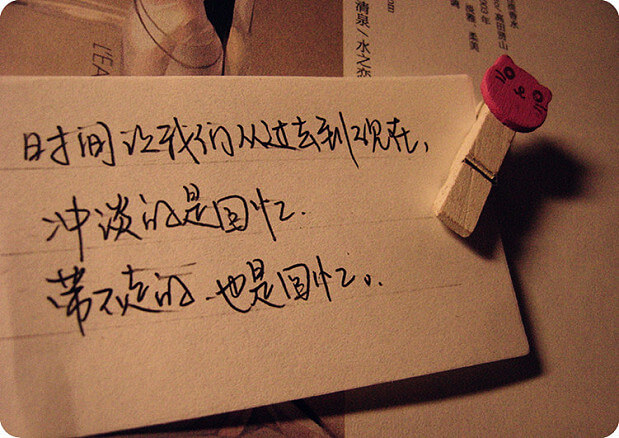 时间让我们从过去到现在,
冲淡的是回忆.
带不走的、也是回忆。
清泉/水
L'EA